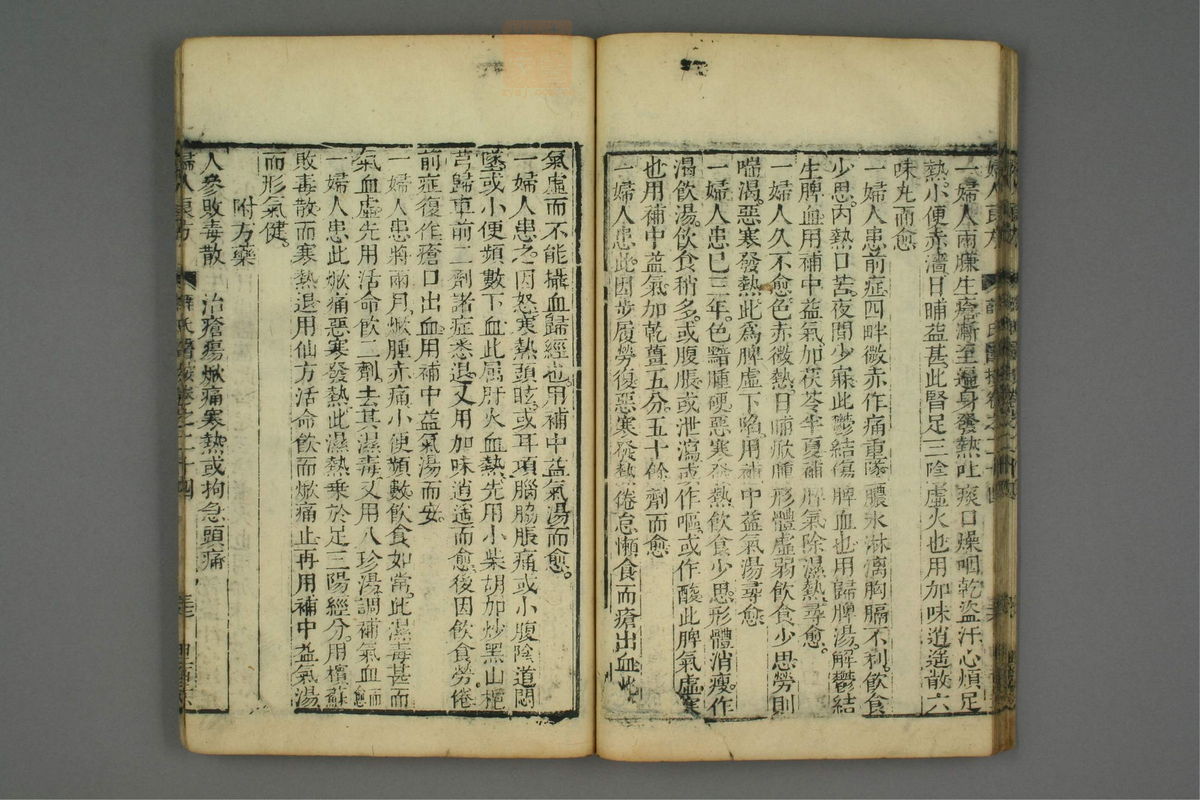 一婦人兩臁生瘡漸至遍身發熱吐痰口燥咽乾盜汗心煩足
熱小便赤濇日晡益甚此腎足三陰虛火也用加味逍遙散六
味丸而愈
一婦人患前症四畔微赤作痛重墜膿水淋漓胸膈不利飲食
少思内熱口苦夜間少寐此鬱結傷脾血也用歸脾湯解鬱結
生脾血用補中益氣加茯苓半夏補脾氣除濕熱尋愈
一婦人久不愈色赤微熱日晡焮腫形體虛弱飲食少思勞則
喘渴惡寒發熱此爲脾虛下陷用補中益氣湯尋愈
一婦人患已三年色黯腫硬惡寒發熱飲食少思形體消瘦作
渴飲湯飲食稍多或腹脹或泄瀉或作嘔或作酸此脾氣虛寒
也用補中益氣加乾薑五分五十餘劑而愈
一婦人患此因步履勞復惡寒發熱倦怠懶食而瘡出血此
氣虛而不能攝血歸經也用補中益氣湯而愈
一婦人患之因怒寒熱頭眩或耳項腦脇脹痛或小腹陰道悶
墜或小便頻數下血此屬肝火血熱先用小柴胡加炒黑山梔
芎歸車前二劑諸症悉退又用加味逍遙而愈後因飲食勞倦
前症復作瘡口出血用補中益氣湯而安
一婦人患將兩月焮腫赤痛小便頻數飲食如常此濕毒甚而
氣血虛先用活命飲二劑去其濕毒又用八珍湯調補氣血而愈
一婦人患此焮痛惡寒發熱此濕熱乘於足三陽經分用檳蘇
敗毒散而寒熱退用仙方活命飲而焮痛止再用補中益氣湯
而形氣健
附方藥
人參敗毒散 治瘡瘍焮痛寒熱或拘急頭痛
婦人良方 薛氏醫按卷之二十四